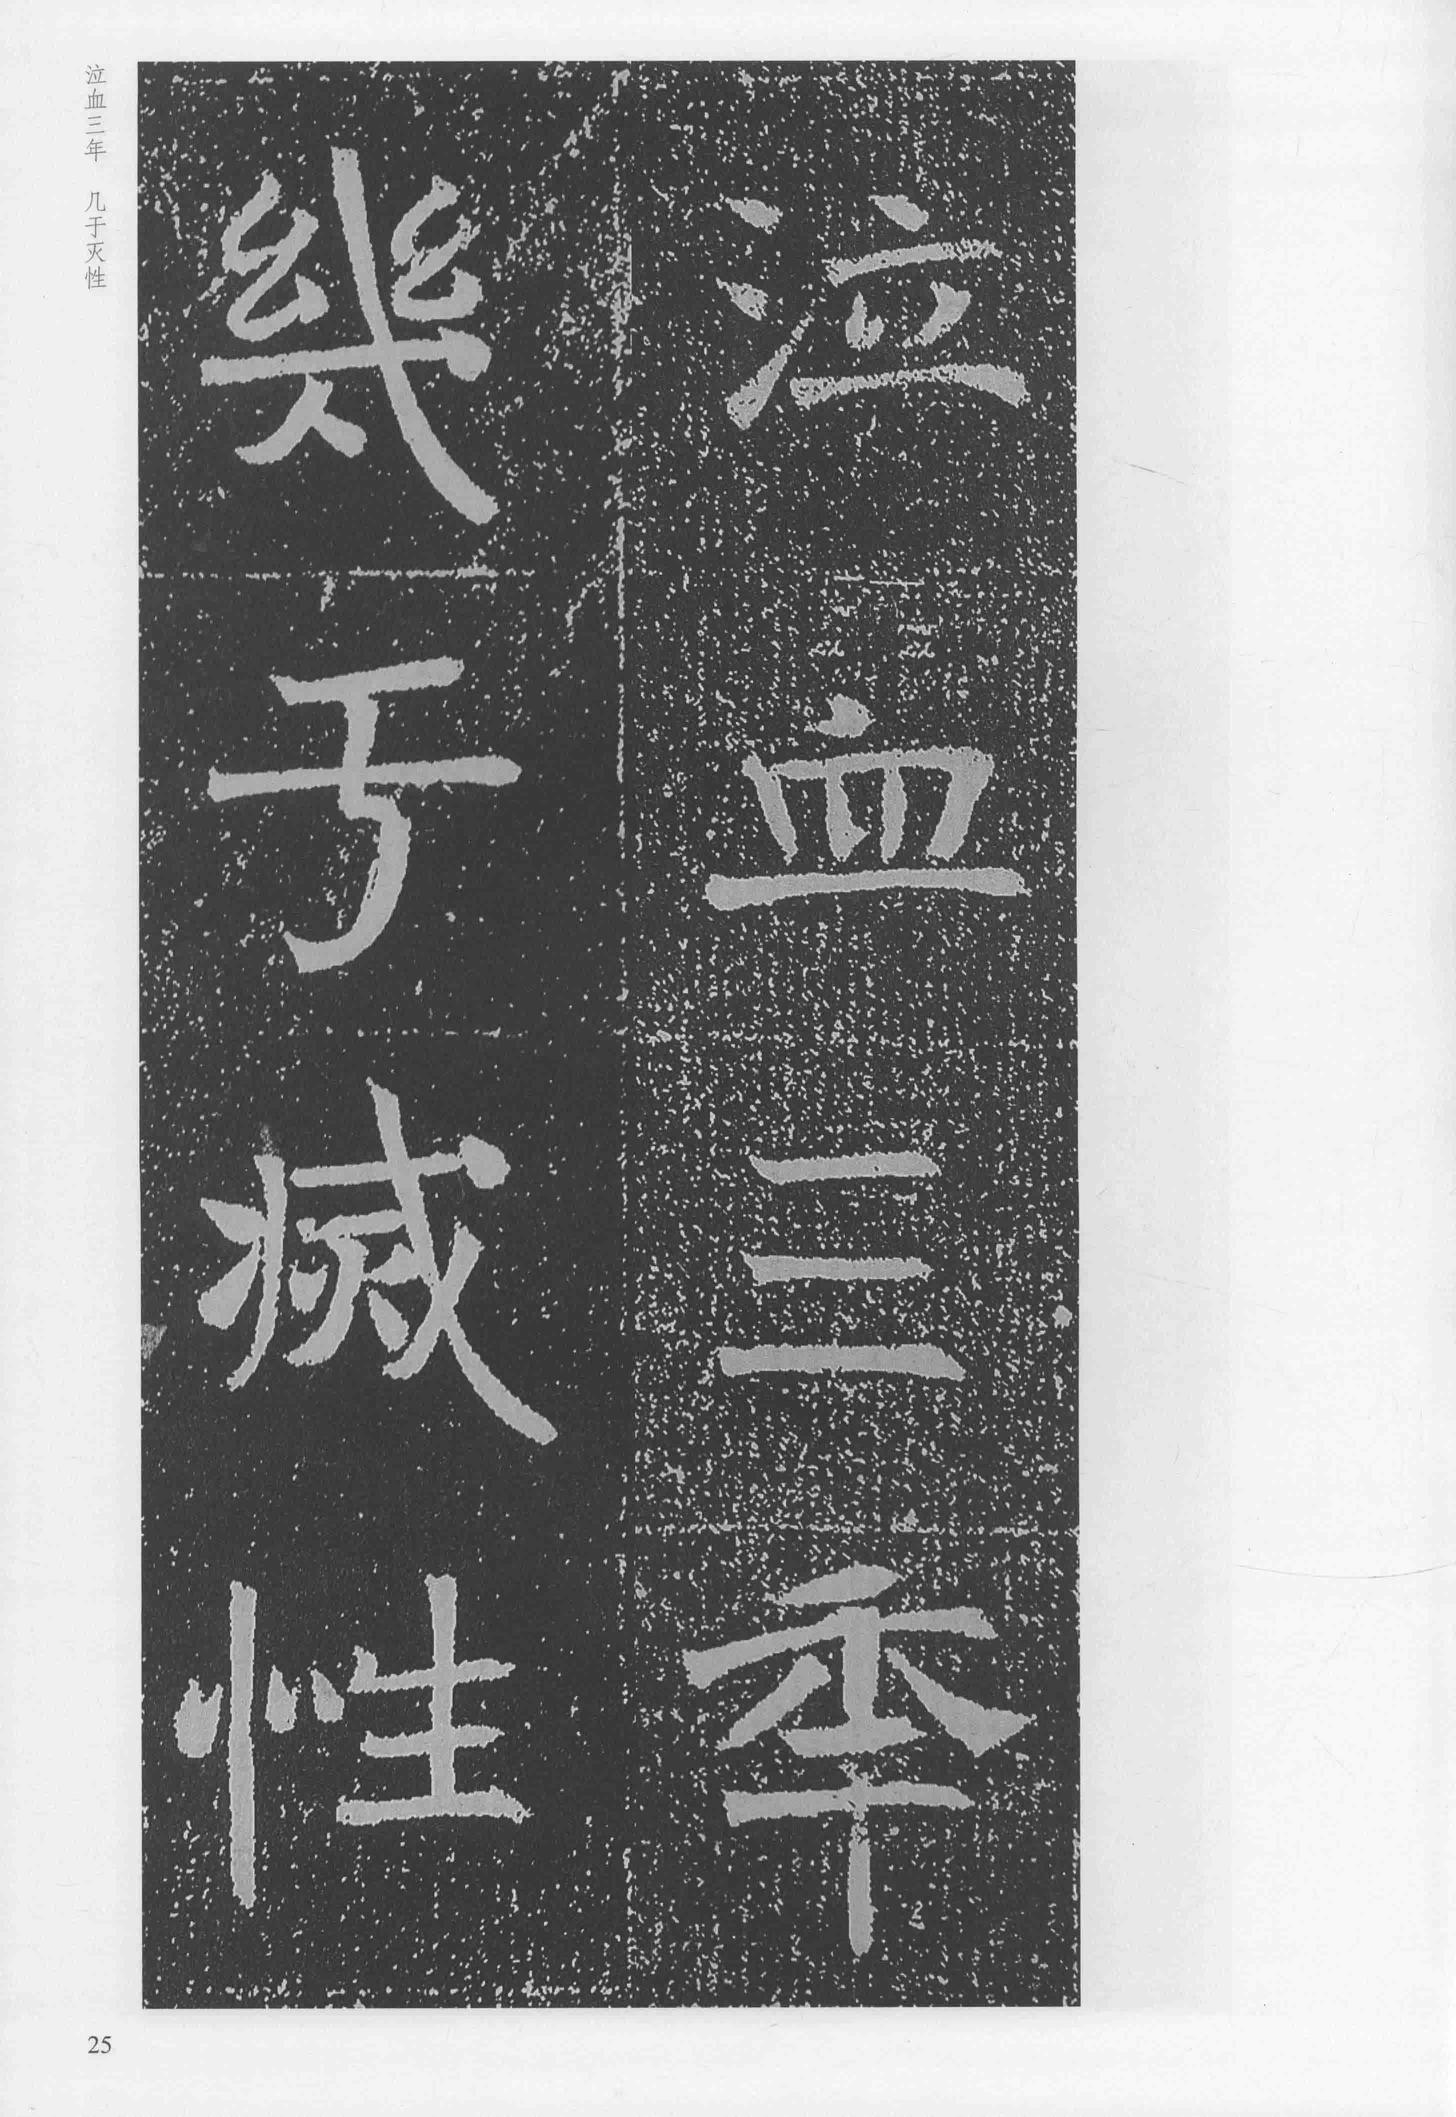 泣血三年
幾于滅性
泣血三年 几于灭性
25